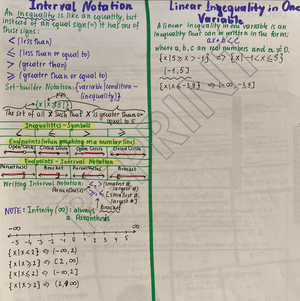 Interval Notation
An inequality is like an equality, but
instead of an equal sign (=) it has one of
these signs:
< (less than)
≤ (less than or equal to)
> (greater than)
≥ (greater than or equal to)
Set-builder Notation: {variable | condition -
(inequality)}
The set of all X such that X is greater than
or equal to 5
Inequalities - Symbols
< ≤ > ≥
Endpoints (when graphing on a number line)
Open Circle Closed Circle Open Circle Closed Circle
Endpoints - Interval Notation
Parentheses Bracket Parentheses Bracket
Writing Interval Notation:
Parentheses
Bracket
NOTE: Infinity (∞): always
a Parenthesis
-∞ ∞
-5 -4 -3 -2 -1 0 1 2 3 4 5
{x|x<2} ⇒ (-∞, 2)
{x|x≥2} ⇒ [2, ∞)
{x|x≤2} ⇒ (-∞, 2]
{x|x>2} ⇒ (2, ∞)
Linear Inequality in One
Variable
A linear inequality in one variable is an
inequality that can be written in the form:
ax+b<c
where a, b, c are real numbers and a≠0.
{x|5≥x>-1} ⇒ {x|-1<x≤5}
(-1, 5]
{x|x≤-3,9} ⇒ (-∞, -3,9]